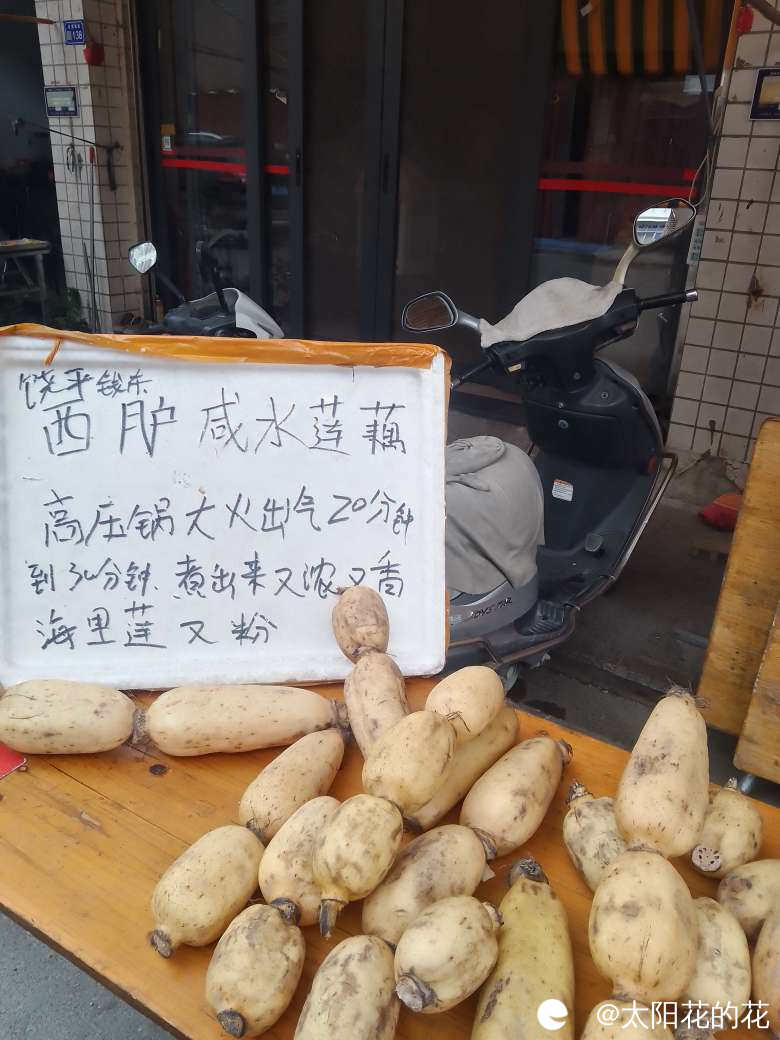 138
饶平钱东
西胪咸水莲藕
高压锅大火出气20分钟
到30分钟.煮出来又浓又香
海里莲又粉
@太阳花的花